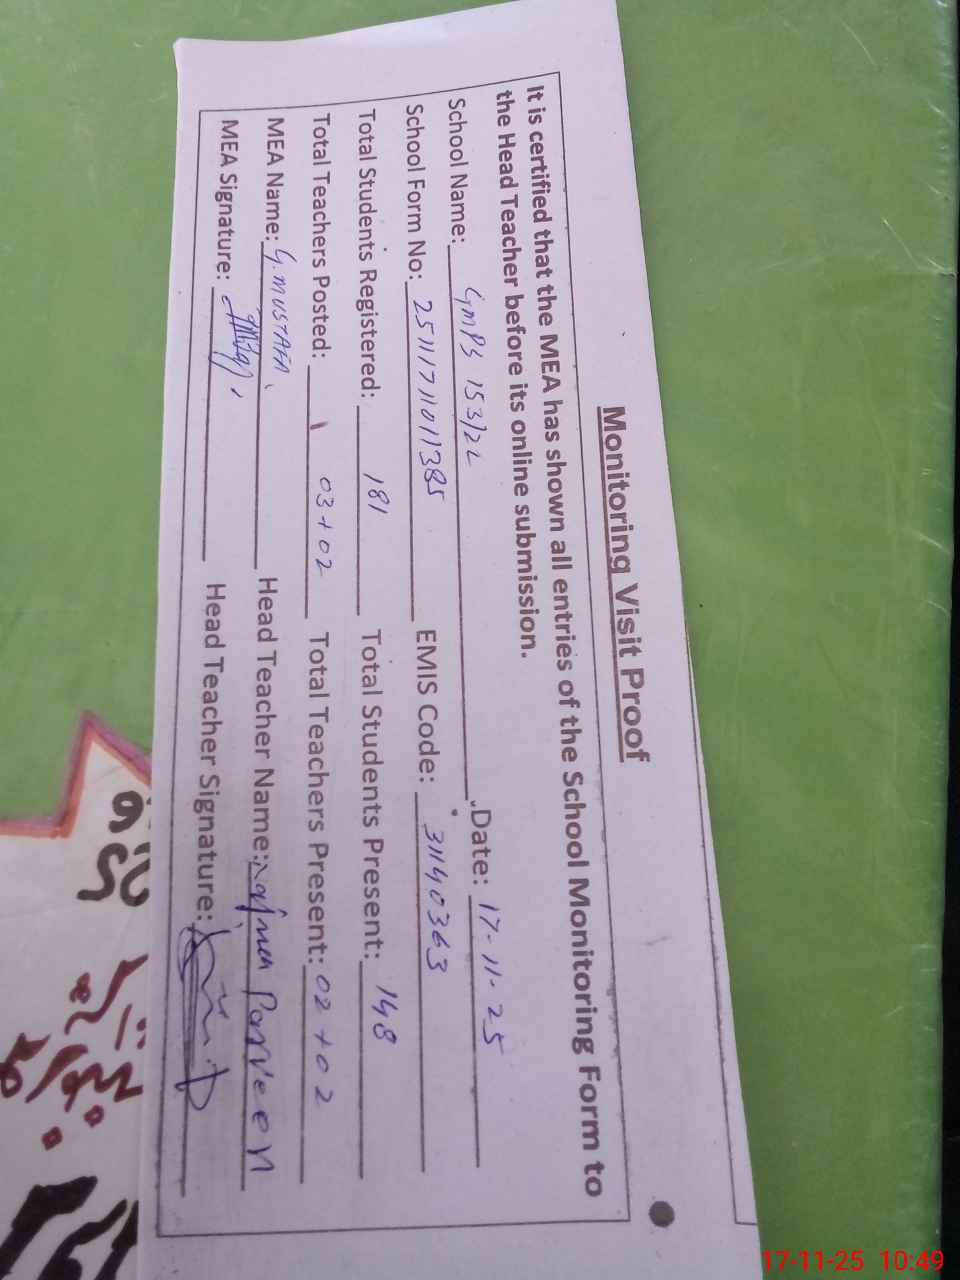 Monitoring Visit Proof
It is certified that the MEA has shown all entries of the School Monitoring Form to
the Head Teacher before its online submission.
School Name: GMPS 153/2L Date: 17-11-25
School Form No: 25111711011385 EMIS Code: 31140363
Total Students Registered: 181 Total Students Present: 148
Total Teachers Posted: 03+02 Total Teachers Present: 02+02
MEA Name: G. MUSTAFA Head Teacher Name: Parveen
MEA Signature: Head Teacher Signature:
17-11-25 10:49